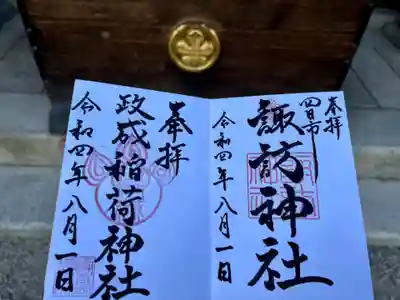 奉拝
四日市
諏訪神社
令和四年八月一日
奉拝
政成稲荷神社
令和四年八月一日